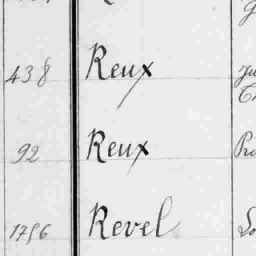 438 Reux
92 Reux
1796 Revel